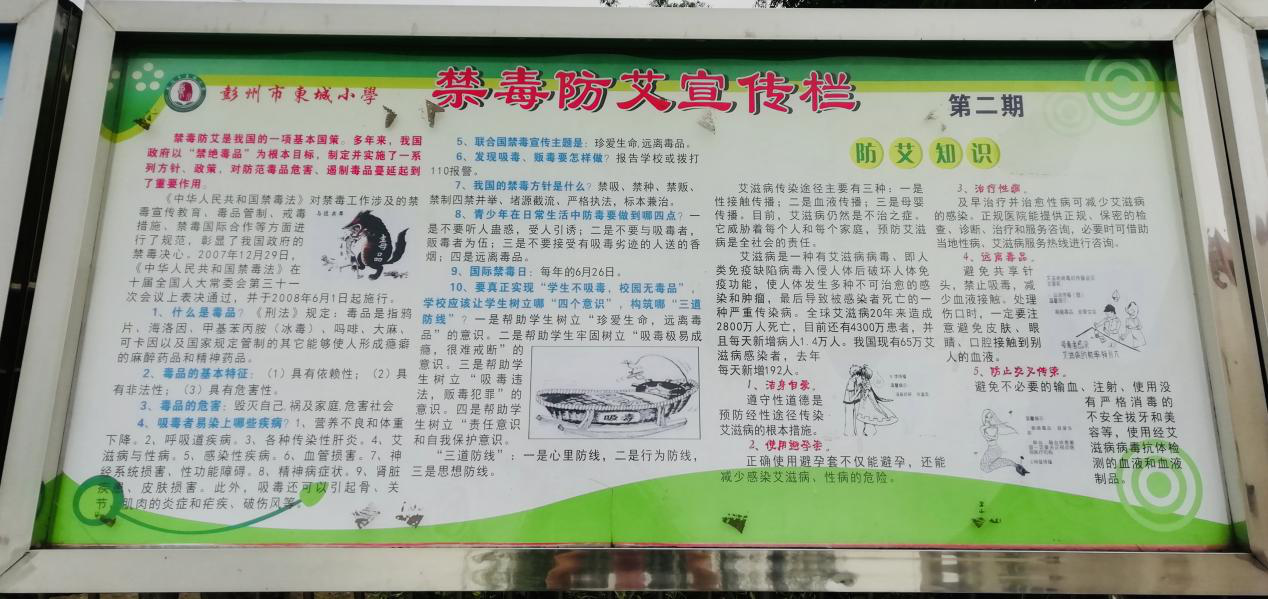 彭州市東城小學
禁毒防艾宣传栏
第二期
禁毒防艾是我国的一项基本国策。多年来，我国
政府以“禁绝毒品”为根本目标，制定并实施了一系
列方针、政策，对防范毒品危害、遏制毒品蔓延起到
了重要作用。
《中华人民共和国禁毒法》对禁毒工作涉及的禁
毒宣传教育、毒品管制、戒毒
措施、禁毒国际合作等方面进
行了规范，彰显了我国政府的
禁毒决心。2007年12月29日，
《中华人民共和国禁毒法》在
十届全国人大常委会第三十一
次会议上表决通过，并于2008年6月1日起施行。
1、什么是毒品？《刑法》规定：毒品是指鸦
片、海洛因、甲基苯丙胺（冰毒）、吗啡、大麻、
可卡因以及国家规定管制的其它能够使人形成瘾癖
的麻醉药品和精神药品。
2、毒品的基本特征：（1）具有依赖性；（2）具
有非法性；（3）具有危害性。
3、毒品的危害：毁灭自己.祸及家庭.危害社会
4、吸毒者易染上哪些疾病？1、营养不良和体重
下降。2、呼吸道疾病。3、各种传染性肝炎。4、艾
滋病与性病。5、感染性疾病。6、血管损害。7、神
经系统损害、性功能障碍。8、精神病症状。9、肾脏
疾患、皮肤损害。此外，吸毒还可以引起骨、关
节、肌肉的炎症和疟疾、破伤风等。
毒品
5、联合国禁毒宣传主题是：珍爱生命.远离毒品。
6、发现吸毒、贩毒要怎样做？报告学校或拨打
110报警。
7、我国的禁毒方针是什么？禁吸、禁种、禁贩、
禁制四禁并举、堵源截流、严格执法，标本兼治。
8、青少年在日常生活中防毒要做到哪四点？一
是不要听人蛊惑，受人引诱；二是不要与吸毒者，
贩毒者为伍；三是不要接受有吸毒劣迹的人送的香
烟；四是远离毒品。
9、国际禁毒日：每年的6月26日。
10、要真正实现“学生不吸毒，校园无毒品”，
学校应该让学生树立哪“四个意识”，构筑哪“三道
防线”？一是帮助学生树立“珍爱生命，远离毒
品”的意识。二是帮助学生牢固树立“吸毒极易成
瘾，很难戒断”的
意识。三是帮助学
生树立“吸毒违
法，贩毒犯罪”的
意识。四是帮助学
生树立“责任意识
和自我保护意识。
吸毒
“三道防线”：一是心里防线，二是行为防线，
三是思想防线。
防艾知识
艾滋病传染途径主要有三种：一是
性接触传播；二是血液传播；三是母婴
传播。目前，艾滋病仍然是不治之症。
它威胁着每个人和每个家庭，预防艾滋
病是全社会的责任。
艾滋病是一种有艾滋病病毒、即人
类免疫缺陷病毒入侵人体后破坏人体免
疫功能，使人体发生多种不可治愈的感
染和肿瘤，最后导致被感染者死亡的一
种严重传染病。全球艾滋病20年来造成
2800万人死亡，目前还有4300万患者，并
且每天新增病人1.4万人。我国现有65万艾
滋病感染者，去年
每天新增192人。
1、洁身自爱。
遵守性道德是
预防经性途径传染
艾滋病的根本措施。
2、使用避孕套。
正确使用避孕套不仅能避孕，还能
减少感染艾滋病、性病的危险。
3、治疗性病。
及早治疗并治愈性病可减少艾滋病
的感染。正规医院能提供正规、保密的检
查、诊断、治疗和服务咨询，必要时可借助
当地性病、艾滋病服务热线进行咨询。
4、远离毒品。
避免共享针
头，禁止吸毒，减
少血液接触。处理
伤口时，一定要注
意避免皮肤、眼
睛、口腔接触到别
人的血液。
5、防止交叉传染。
避免不必要的输血、注射、使用没
有严格消毒的
不安全拔牙和美
容等，使用经艾
滋病病毒抗体检
测的血液和血液
制品。